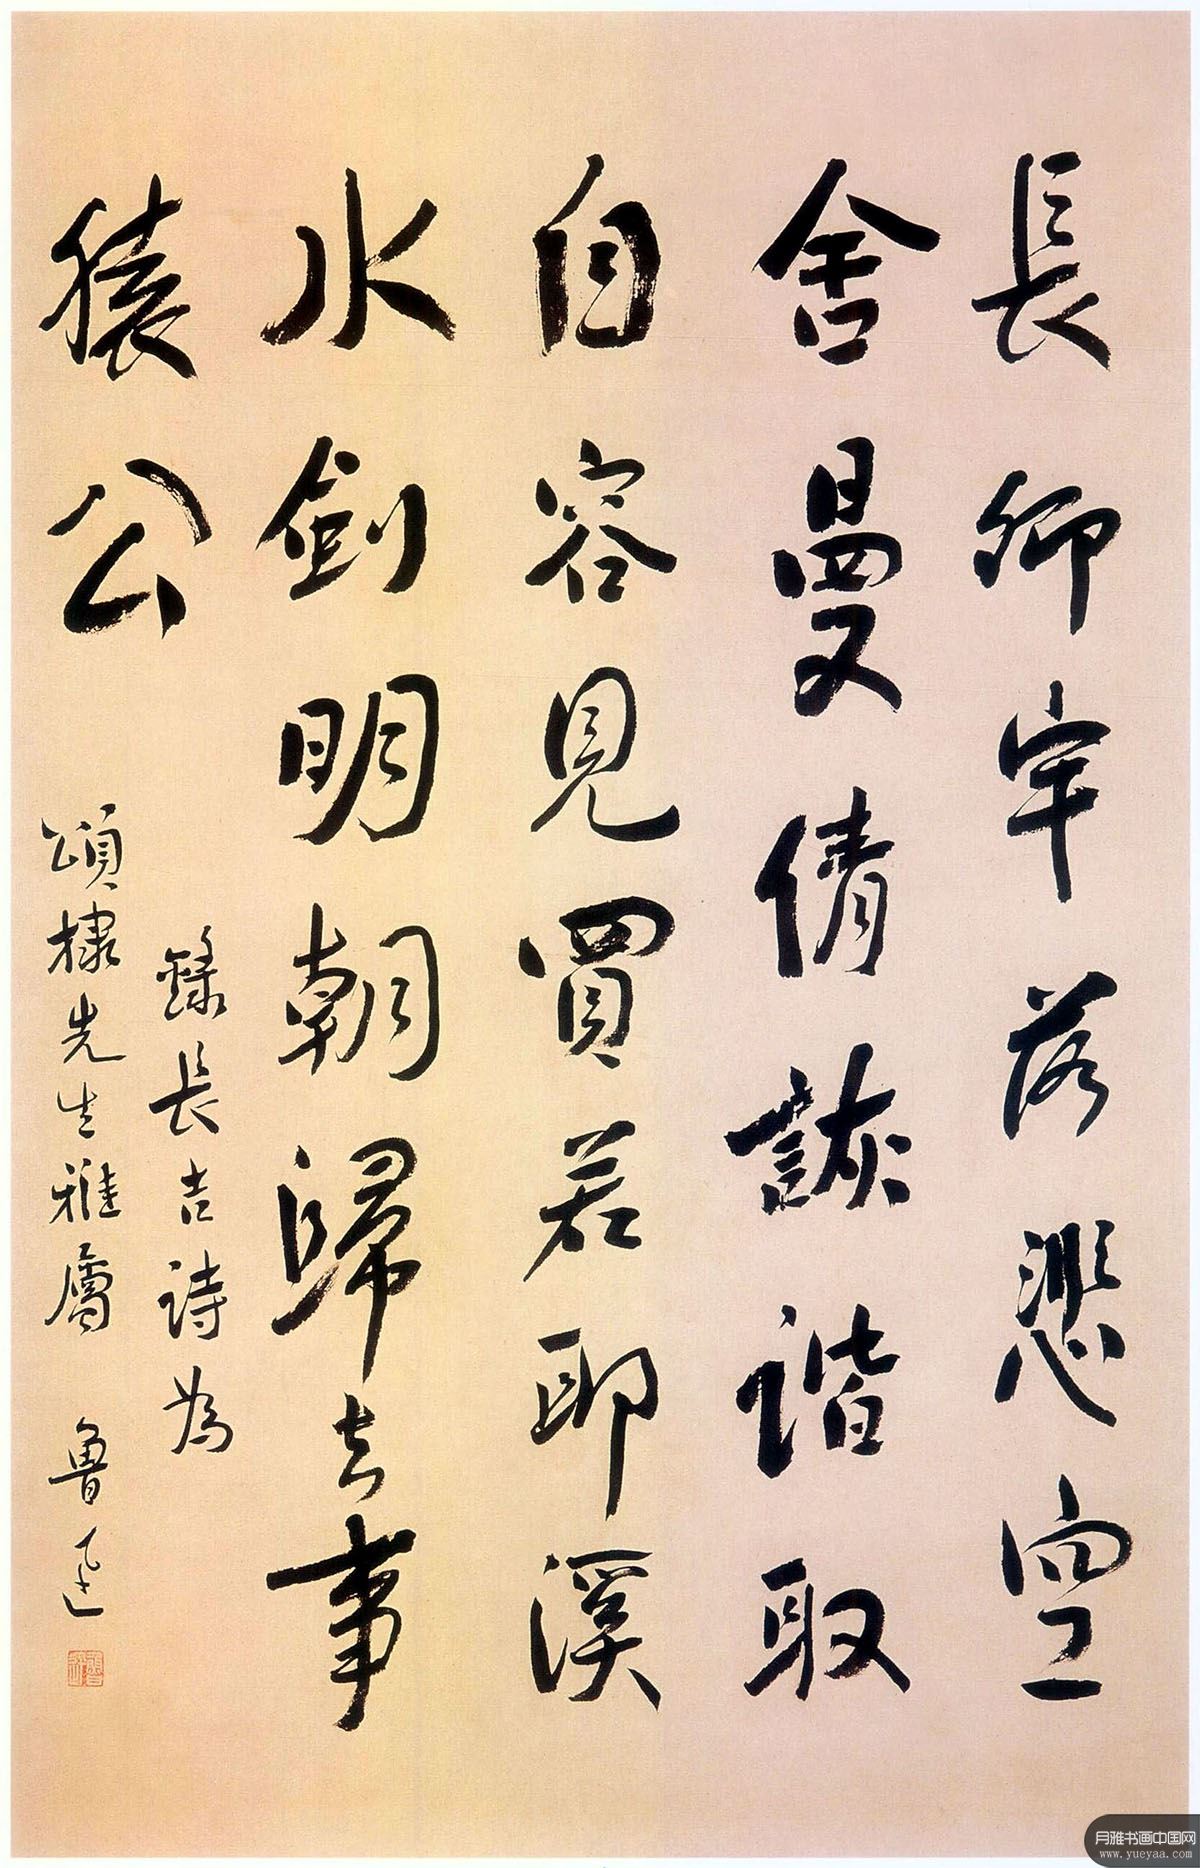 長卿牢落悲空
舍曼倩詼諧取
自容見買若耶溪
水劍明朝歸去事
猿公
錄長吉詩為
頌棣先生雅屬 魯迅
魯迅
月雅书画中国网
www.yueyaa.com